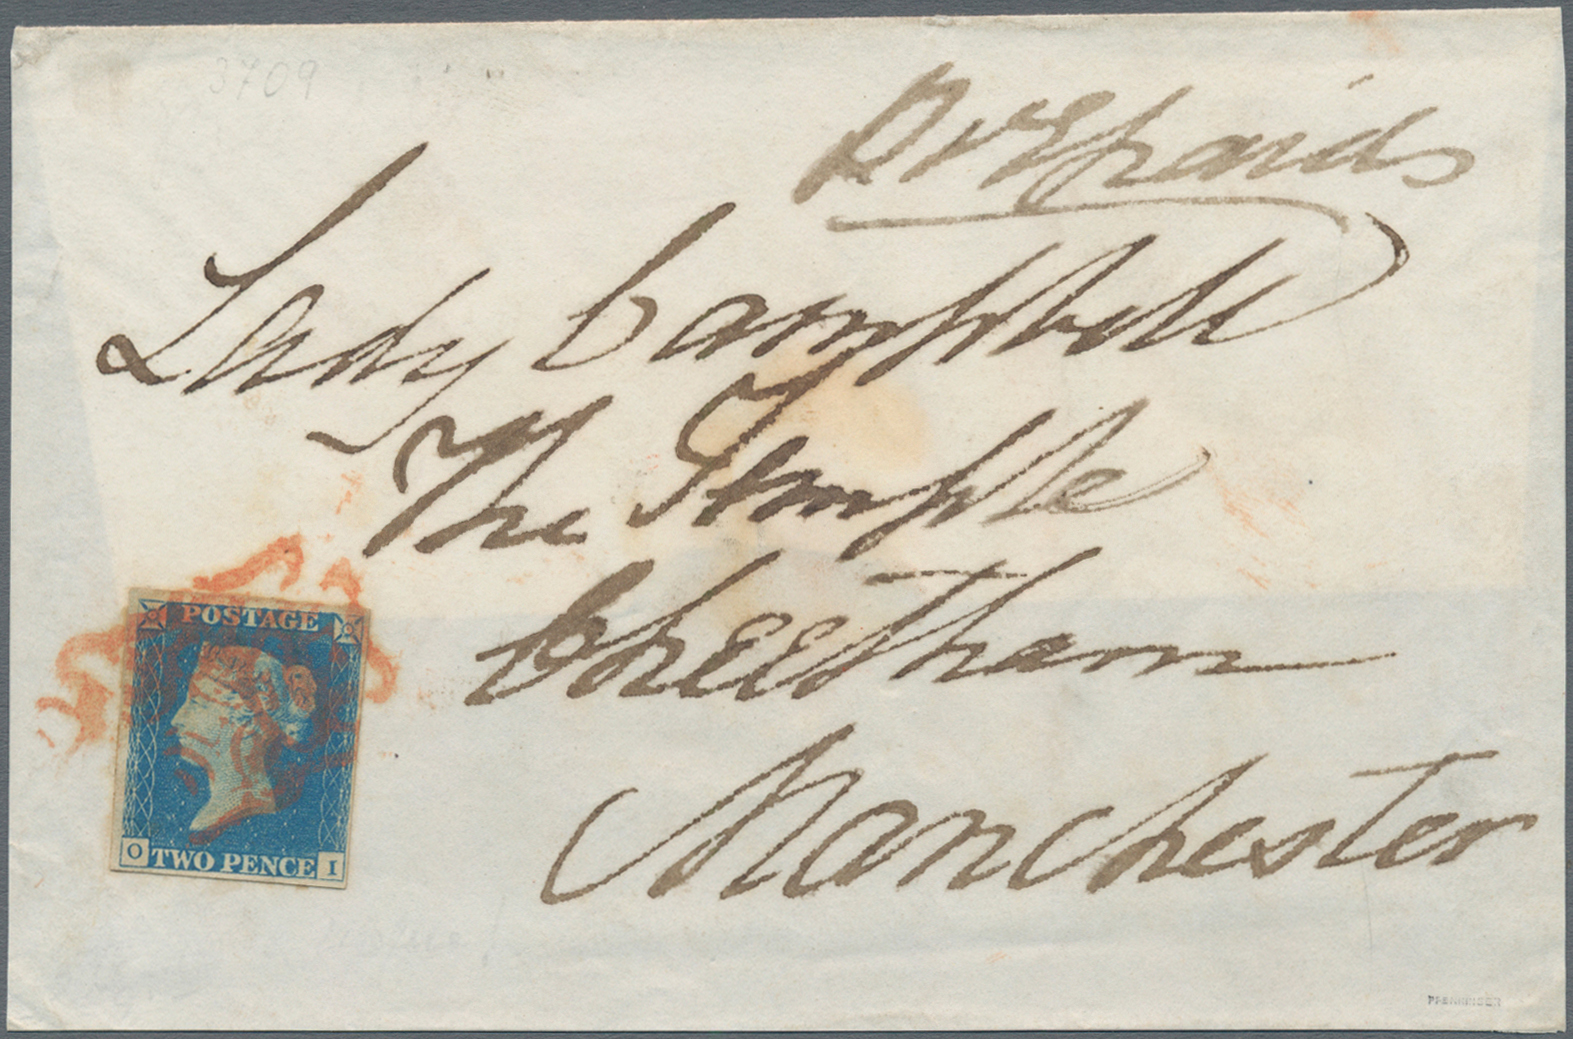 3709
Prepaid
Lady Campbell
The Temple
Cheetham
Manchester
POSTAGE
O TWO PENCE I
PFENNINGER